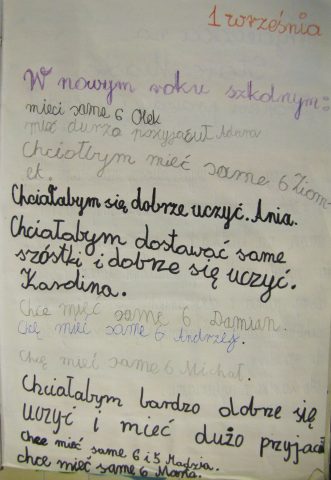 1 września
W nowym roku szkolnym:
mieci same 6 Olek
mieć durzo poxyjaćuł Adana
Chciołbym mieć same 6 Ziom
ek.
Chciałabym się dobrze uczyć. Ania.
Chciałabym dostawać same
szóstki i dobrze się uczyć.
Karolina.
Chce mieć same 6 Damian.
Chcę mieć same 6 Andrzej.
Chcę mieć same 6 Michał.
Chciałabym bardzo dobrze się
uczyć i mieć dużo przyjaciół
Chce mieć same 6 i 5 Madzia.
chce mieć same 6 Marta.